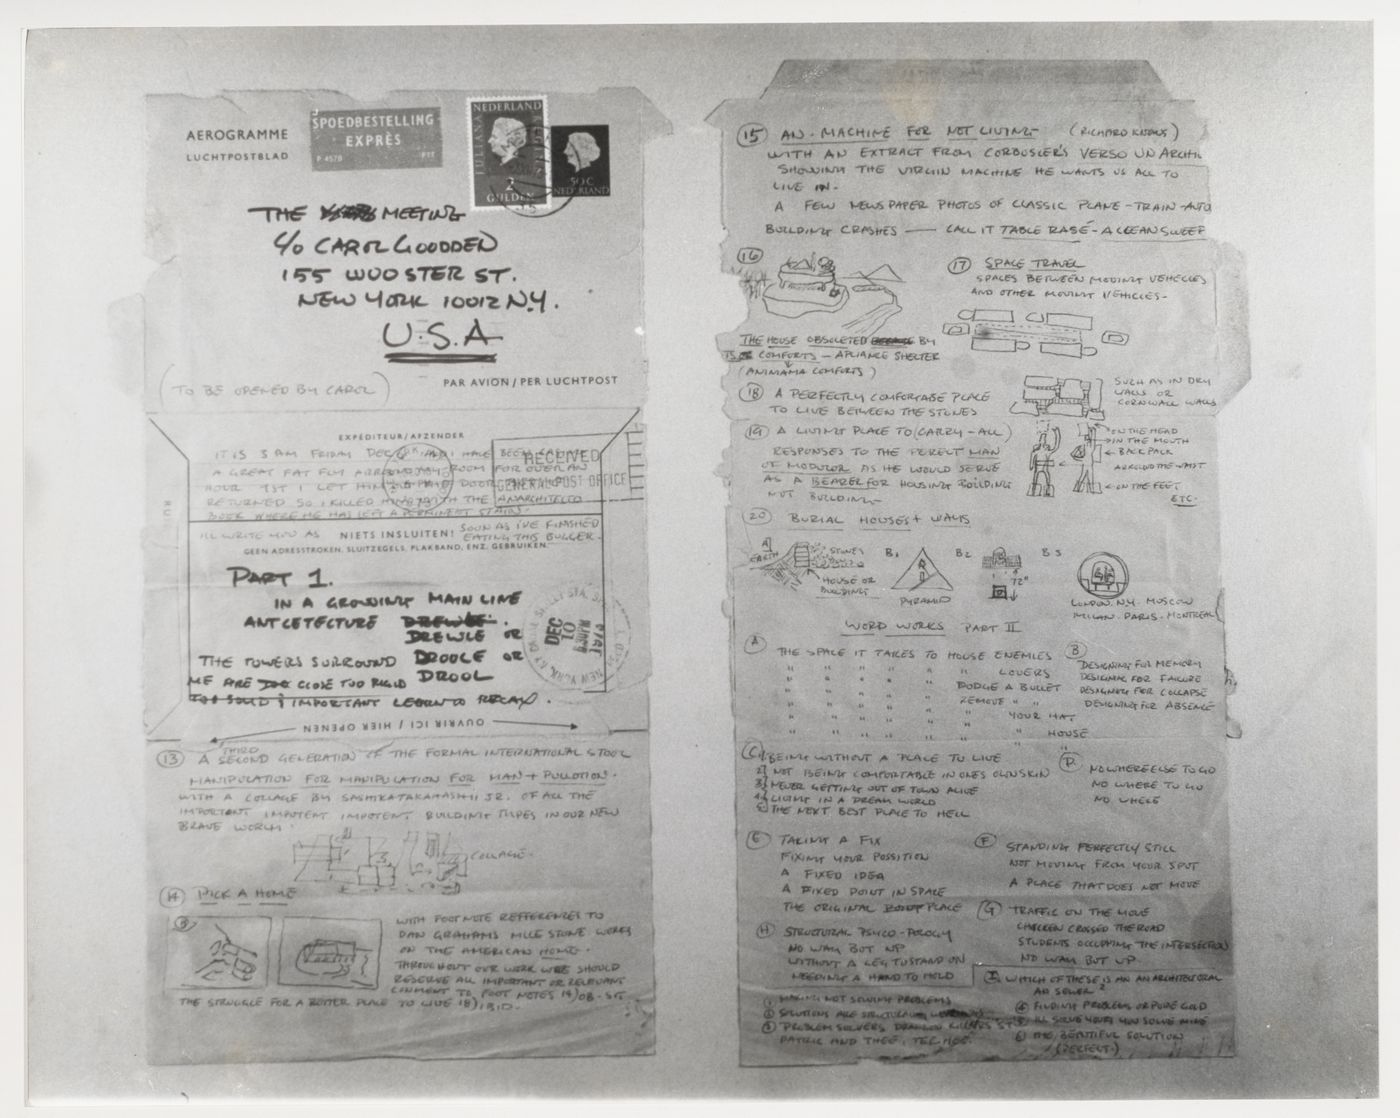 AEROGRAMME
LUCHTPOSTBLAD
SPOEDBESTELLING
EXPRÈS
P 4570 PTT
NEDERLAND
JULIANA REGINA
2
GULDEN
50 C
NEDERLAND
THE MEETING
C/O CAROL GOODDEN
155 WOOSTER ST.
NEW YORK 10012 N.Y.
U.S.A
(TO BE OPENED BY CAROL)
PAR AVION / PER LUCHTPOST
EXPÉDITEUR/AFZENDER
IT IS 3 AM FRIDAY DEC AND I HAVE BEEN
A GREAT FAT FLY AROUND MY ROOM FOR OVER AN
HOUR 1ST I LET HIM DOOR
RETURNED SO I KILLED HIM WITH THE ANARCHITECTS
BOOK WHERE HE HAS LEFT A PERMINENT STAIN.
RECEIVED
GENERAL POST OFFICE
I'LL WRITE YOU AS SOON AS I'VE FINISHED
NIETS INSLUITEN! EATING THIS BUGGER.
GEEN ADRESSTROKEN, SLUITZEGELS, PLAKBAND, ENZ. GEBRUIKEN.
PART 1.
IN A GROWING MAIN LINE
ANTCETECTURE DREWLE.
DREWLE OR
THE TOWERS SURROUND DROOLE OR
ME ARE TOO CLOSE TOO RIGID DROOL
TOO SOLID & IMPORTANT LEARN TO RELAX.
DEC
10
OUVRIR ICI / HIER OPENEN
(13) A SECOND THIRD GENERATION OF THE FORMAL INTERNATIONAL STOOL
MANIPULATION FOR MANIPULATION FOR MAN + PULLOTION.
WITH A COLLAGE BY SASHIKATAKAHASHII JR. OF ALL THE
IMPORTANT IMPOTENT IMPOTENT BUILDING TYPES IN OUR NEW
BRAVE WORLD.
COLLAGE.
(14) PICK A HOME
WITH FOOT NOTE REFFERENCES TO
DAN GRAHAMS MILE STONE WORKS
ON THE AMERICAN HOME.
THROUGHOUT OUR WORK WE SHOULD
RESERVE ALL IMPORTANT OR RELEVANT
COMMENT TO FOOT NOTES 14) OB-SIT
THE STRUGGLE FOR A BETTER PLACE TO LIVE 18) IBID.
(15) AN. MACHINE FOR NOT LIVING (RICHARD KNOWS)
WITH AN EXTRACT FROM CORBUSIER'S VERSO UN ARCHI
SHOWING THE VIRGIN MACHINE HE WANTS US ALL TO
LIVE IN.
A FEW NEWSPAPER PHOTOS OF CLASSIC PLANE-TRAIN-AUTO
BUILDING CRASHES — CALL IT TABLE RASÉ - A CLEAN SWEEP
(16)
THE HOUSE OBSOLETED BY
ITS COMFORTS - APLIANCE SHELTER
(ANIMAMA COMFORTS)
(17) SPACE TRAVEL
SPACES BETWEEN MOVING VEHECLES
AND OTHER MOVING VEHICLES-
(18) A PERFECTLY COMFORTABLE PLACE
TO LIVE BETWEEN THE STONES
SUCH AS IN DRY
WALLS OR
CORNWALL WALLS
(19) A LIVING PLACE TO (CARRY-ALL)
RESPONSES TO THE PERFECT MAN
OF MODULOR AS HE WOULD SERVE
AS A BEARER FOR HOUSING BUILDING
NOT BUILDING
ON THE HEAD
IN THE MOUTH
BACK PACK
AROUND THE WAIST
ON THE FEET
ETC.
(20) BURIAL HOUSES + WALLS
A
EARTH
STONES
HOUSE OR
BUILDING
B1
PYRAMID
B2
72"
B3
LONDON. N.Y. MOSCOW
MILAN. PARIS. MONTREAL
WORD WORKS PART II
(A) THE SPACE IT TAKES TO HOUSE ENEMIES
" " " " " " LOVERS
" " " " " DODGE A BULLET
" " " " " REMOVE " "
" " " " " " YOUR HAT
" " " " " " " HOUSE
(B) DESIGNING FOR MEMORY
DESIGNING FOR FAILURE
DESIGNING FOR COLLAPSE
DESIGNING FOR ABSENCE
(C) 1) BEING WITHOUT A PLACE TO LIVE
2) NOT BEING COMFORTABLE IN ONES OWN SKIN
3) NEVER GETTING OUT OF TOWN ALIVE
4) LIVING IN A DREAM WORLD
5) THE NEXT BEST PLACE TO HELL
(D) NO WHERE ELSE TO GO
NO WHERE TO GO
NO WHERE
(E) TAKING A FIX
FIXING YOUR POSSITION
A FIXED IDEA
A FIXED POINT IN SPACE
THE ORIGINAL PLACE
(F) STANDING PERFECTLY STILL
NOT MOVING FROM YOUR SPOT
A PLACE THAT DOES NOT MOVE
(G) TRAFFIC ON THE MOVE
CHICKEN CROSSED THE ROAD
STUDENTS OCCUPYING THE INTERSECTION
NO WAY BUT UP
(H) STRUCTURAL PSYCO-POLOGY
NO WAY BUT UP
WITHOUT A LEG TO STAND ON
NEEDING A HAND TO HOLD
(I) WHICH OF THESE IS AN AN ARCHITECTORAL
ANSWER?
(1) MAKING NOT SOLVING PROBLEMS
(2) SOLUTIONS ARE STRUCTURAL
(3) PROBLEM SOLVERS
(4) FINDING PROBLEMS OR PURE GOLD
(5) I'LL SOLVE YOURS YOU SOLVE MINE
(6) THE BEAUTIFUL SOLUTION
(PERFECT)